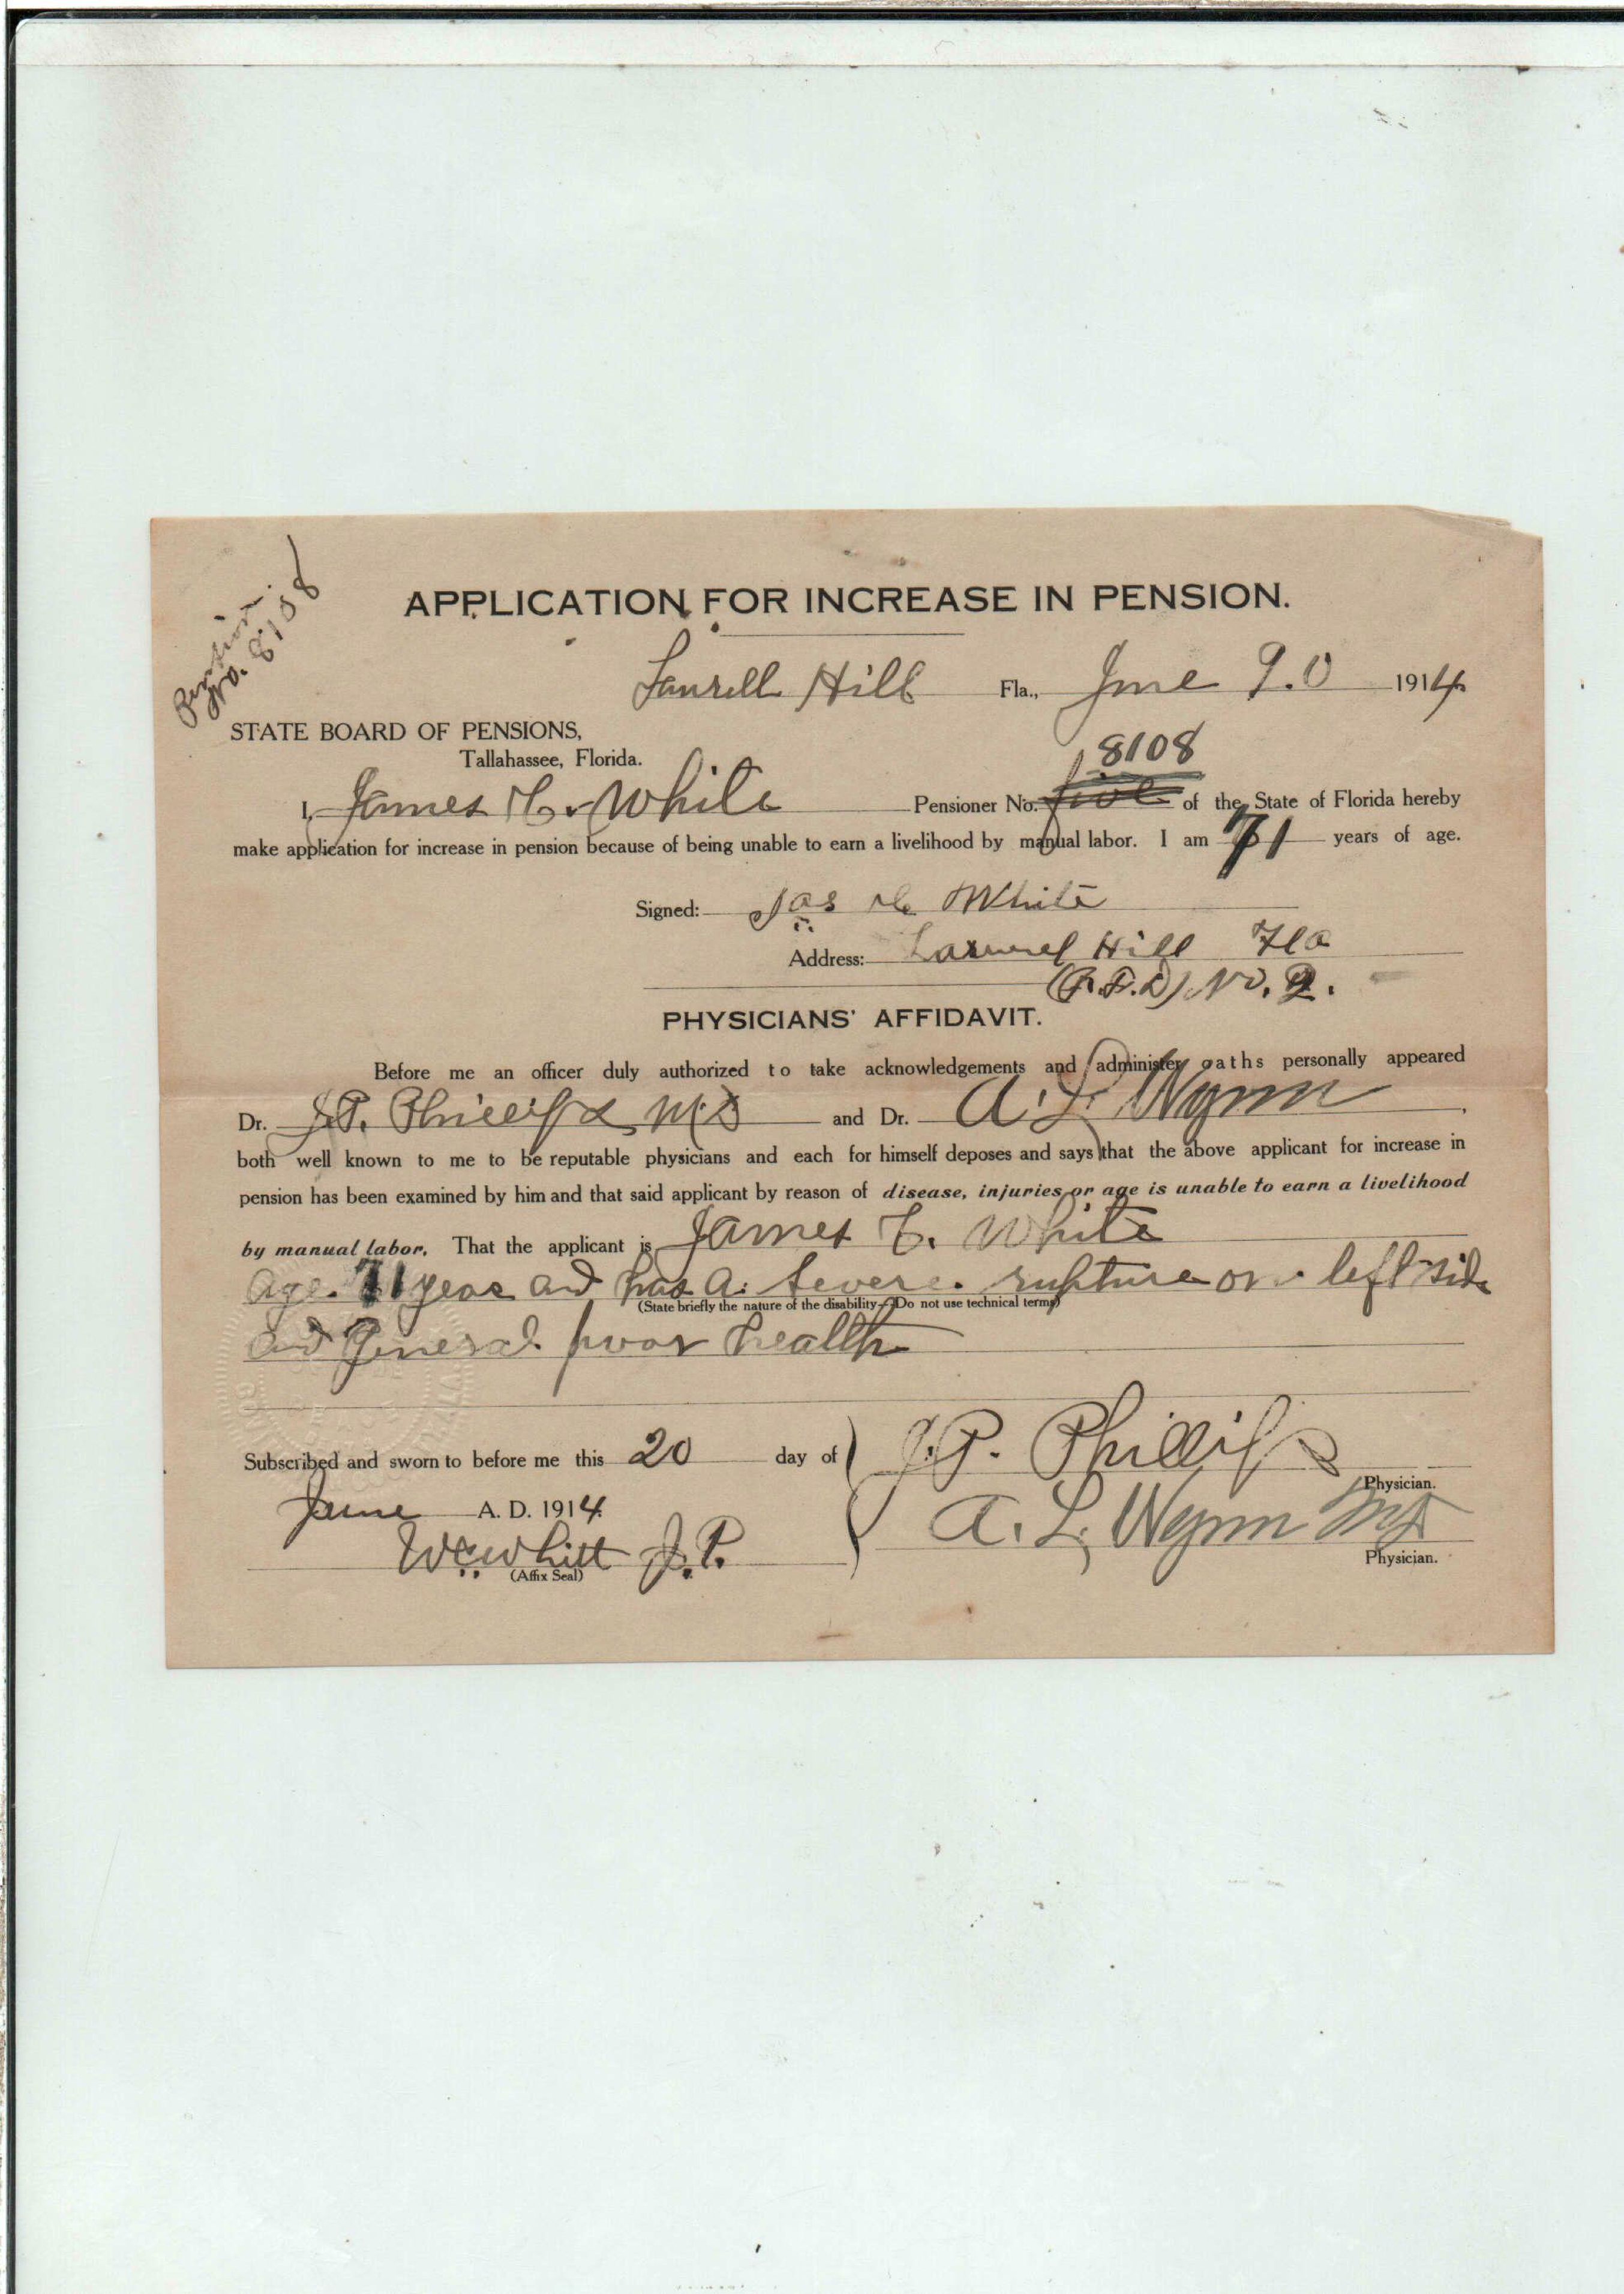 Pension
No. 8108
APPLICATION FOR INCREASE IN PENSION.
Laurell Hill Fla., June 20 1914
STATE BOARD OF PENSIONS,
Tallahassee, Florida.
8108
I, James C. White Pensioner No. of the State of Florida hereby
make application for increase in pension because of being unable to earn a livelihood by manual labor. I am 71 years of age.
Signed: Jas C White
Address: Laurel Hill Fla
(R.F.D) No. 2.
PHYSICIANS' AFFIDAVIT.
Before me an officer duly authorized to take acknowledgements and administer oaths personally appeared
Dr. J.P. Phillips MD and Dr. A. L. Wynn,
both well known to me to be reputable physicians and each for himself deposes and says that the above applicant for increase in
pension has been examined by him and that said applicant by reason of disease, injuries or age is unable to earn a livelihood
by manual labor. That the applicant is James C. White
age 71 years and has a severe rupture on left side
(State briefly the nature of the disability—Do not use technical terms)
and General poor health
Subscribed and sworn to before me this 20 day of J.P. Phillips
Physician.
June A. D. 1914 A. L. Wynn MD
Physician.
W.C. Whitt J.P.
(Affix Seal)